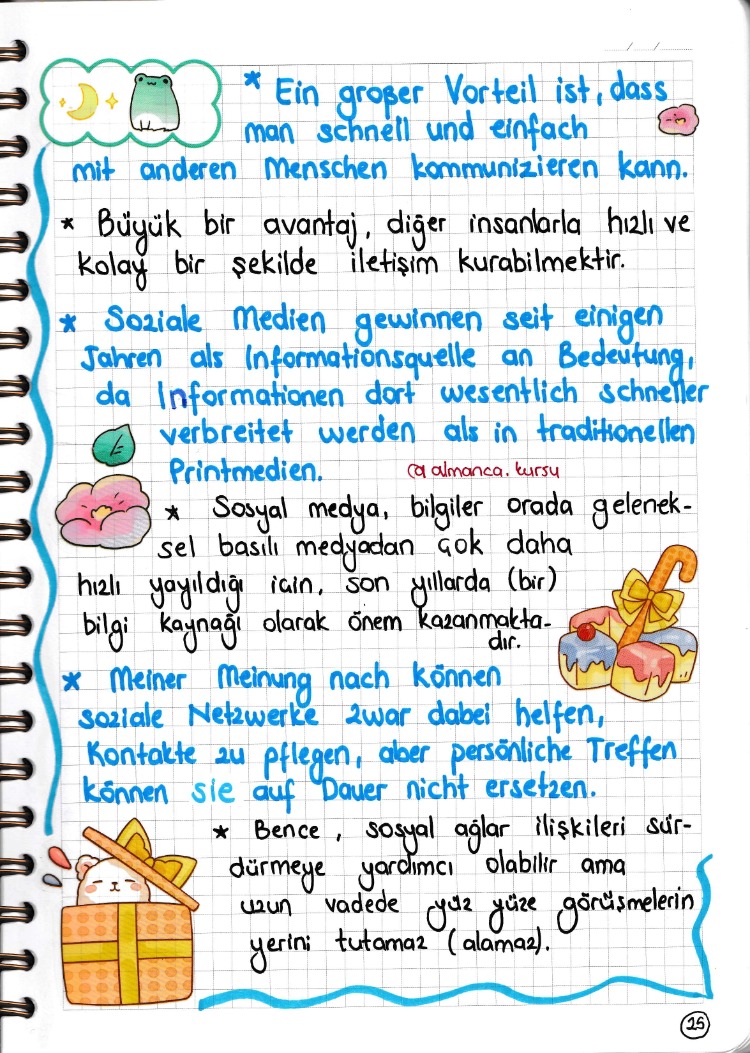 * Ein großer Vorteil ist, dass
man schnell und einfach
mit anderen Menschen kommunizieren kann.
* Büyük bir avantaj, diğer insanlarla hızlı ve
kolay bir şekilde iletişim kurabilmektir.
* Soziale Medien gewinnen seit einigen
Jahren als Informationsquelle an Bedeutung,
da Informationen dort wesentlich schneller
verbreitet werden als in traditionellen
Printmedien.
@almanca.kursu
* Sosyal medya, bilgiler orada gelenek-
sel basılı medyadan çok daha
hızlı yayıldığı için, son yıllarda (bir)
bilgi kaynağı olarak önem kazanmakta-
dır.
* Meiner Meinung nach können
soziale Netzwerke zwar dabei helfen,
Kontakte zu pflegen, aber persönliche Treffen
können sie auf Dauer nicht ersetzen.
* Bence, sosyal ağlar ilişkileri sür-
dürmeye yardımcı olabilir ama
uzun vadede yüz yüze görüşmelerin
yerini tutamaz (alamaz).
25